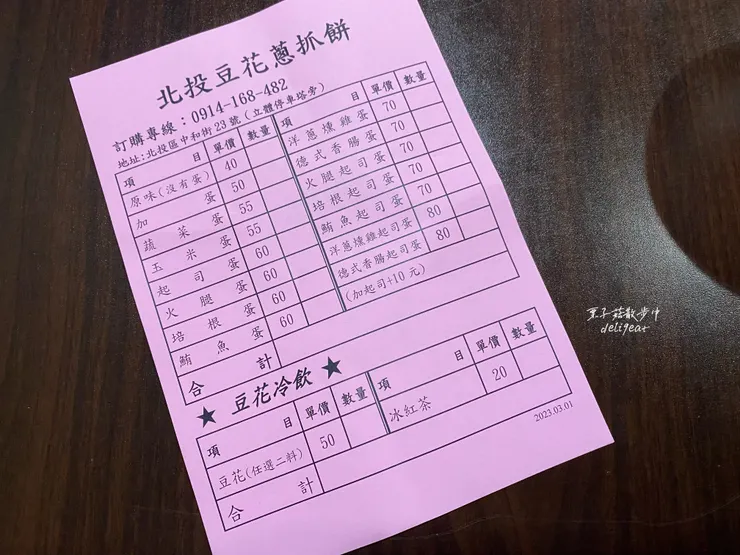 北投豆花蔥抓餅
訂購專線：0914-168-482
地址:北投區中和街23號(立體停車塔旁)
項目 單價 數量
原味(沒有蛋) 40
加蛋 50
蔬菜蛋 55
玉米蛋 55
起司蛋 60
火腿蛋 60
培根蛋 60
鮪魚蛋 60
合計
項目 單價 數量
洋蔥燻雞蛋 70
德式香腸蛋 70
火腿起司蛋 70
培根起司蛋 70
鮪魚起司蛋 70
洋蔥燻雞起司蛋 80
德式香腸起司蛋 80
(加起司+10元)
★ 豆花冷飲 ★
項目 單價 數量
豆花(任選二料) 50
合計
項目 單價 數量
冰紅茶 20
2023.03.01
栗子菇散步中
deli9ear